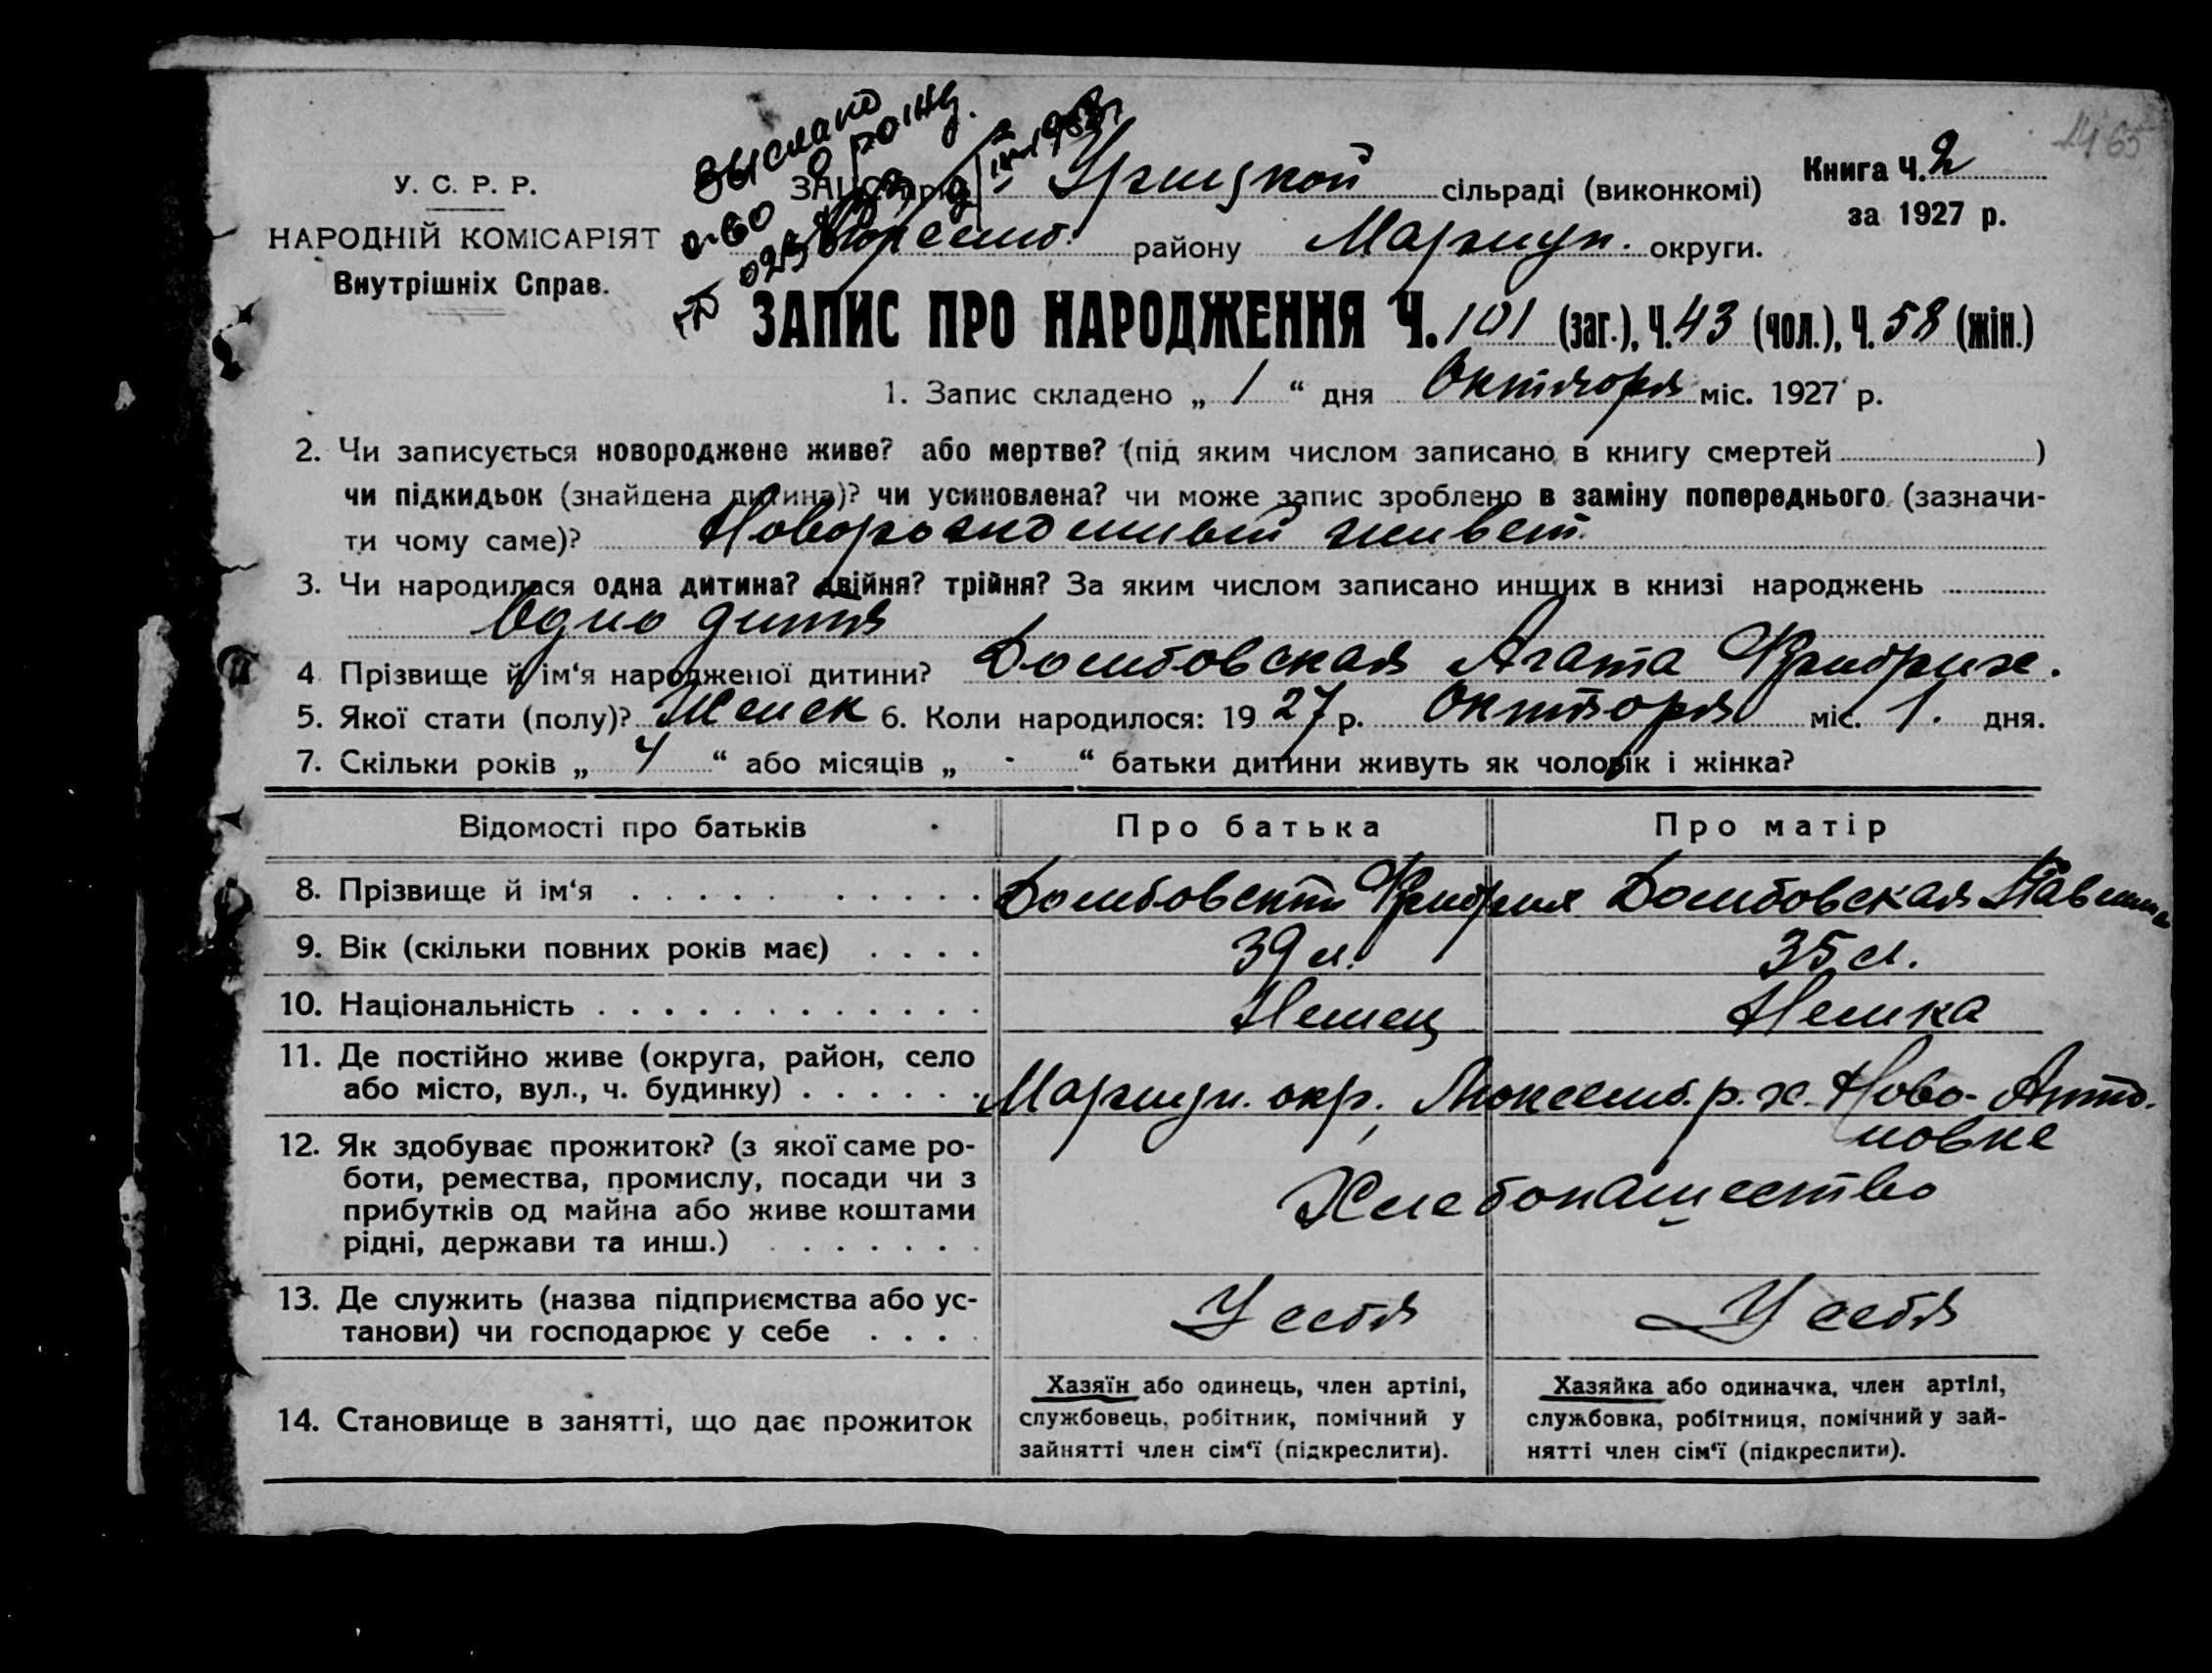 1465
выслано
о рожд.
Книга Ч. 2
за 1927 р.
У. С. Р. Р.
НАРОДНІЙ КОМІСАРІЯТ
Внутрішніх Справ.
при Урицкой сільраді (виконкомі)
Люксемб. району Мариуп. округи.
ЗАПИС ПРО НАРОДЖЕННЯ Ч. 101 (заг.), Ч. 43 (чол.), Ч. 58 (жін.)
1. Запис складено „ 1 “ дня Октября міс. 1927 р.
2. Чи записується новороджене живе? або мертве? (під яким числом записано в книгу смертей )
чи підкидьок (знайдена дитина)? чи усиновлена? чи може запис зроблено в заміну попереднього (зазначи-
ти чому саме)? Новорожденный живет.
3. Чи народилася одна дитина? двійня? трійня? За яким числом записано инщих в книзі народжень
Одно дитя
4 Прізвище й ім‘я народженої дитини? Домбовская Агата Фридрих.
5. Якої стати (полу)? Женск 6. Коли народилося: 19 27 р. Октября міс. 1. дня.
7. Скільки років „ 4 “ або місяців „ - “ батьки дитини живуть як чоловік і жінка?
Відомості про батьків Про батька Про матір
8. Прізвище й ім‘я Домбовский Фридрих Домбовская Павлина
9. Вік (скільки повних років має) 39 л. 35 л.
10. Національність Немец Немка
11. Де постійно живе (округа, район, село
або місто, вул., ч. будинку) Мариуп. окр., Люксемб. р. х. Ново-Анто-
новка
12. Як здобуває прожиток? (з якої саме ро-
боти, ремества, промислу, посади чи з
прибутків од майна або живе коштами
рідні, держави та инш.) Хлебопашество
13. Де служить (назва підприємства або ус-
танови) чи господарює у себе У себя У себя
14. Становище в занятті, що дає прожиток
Хазяїн або одинець, член артілі,
службовець, робітник, помічний у
зайнятті член сім‘ї (підкреслити).
Хазяйка або одиначка, член артілі,
службовка, робітниця, помічний у зай-
нятті член сім‘ї (підкреслити).